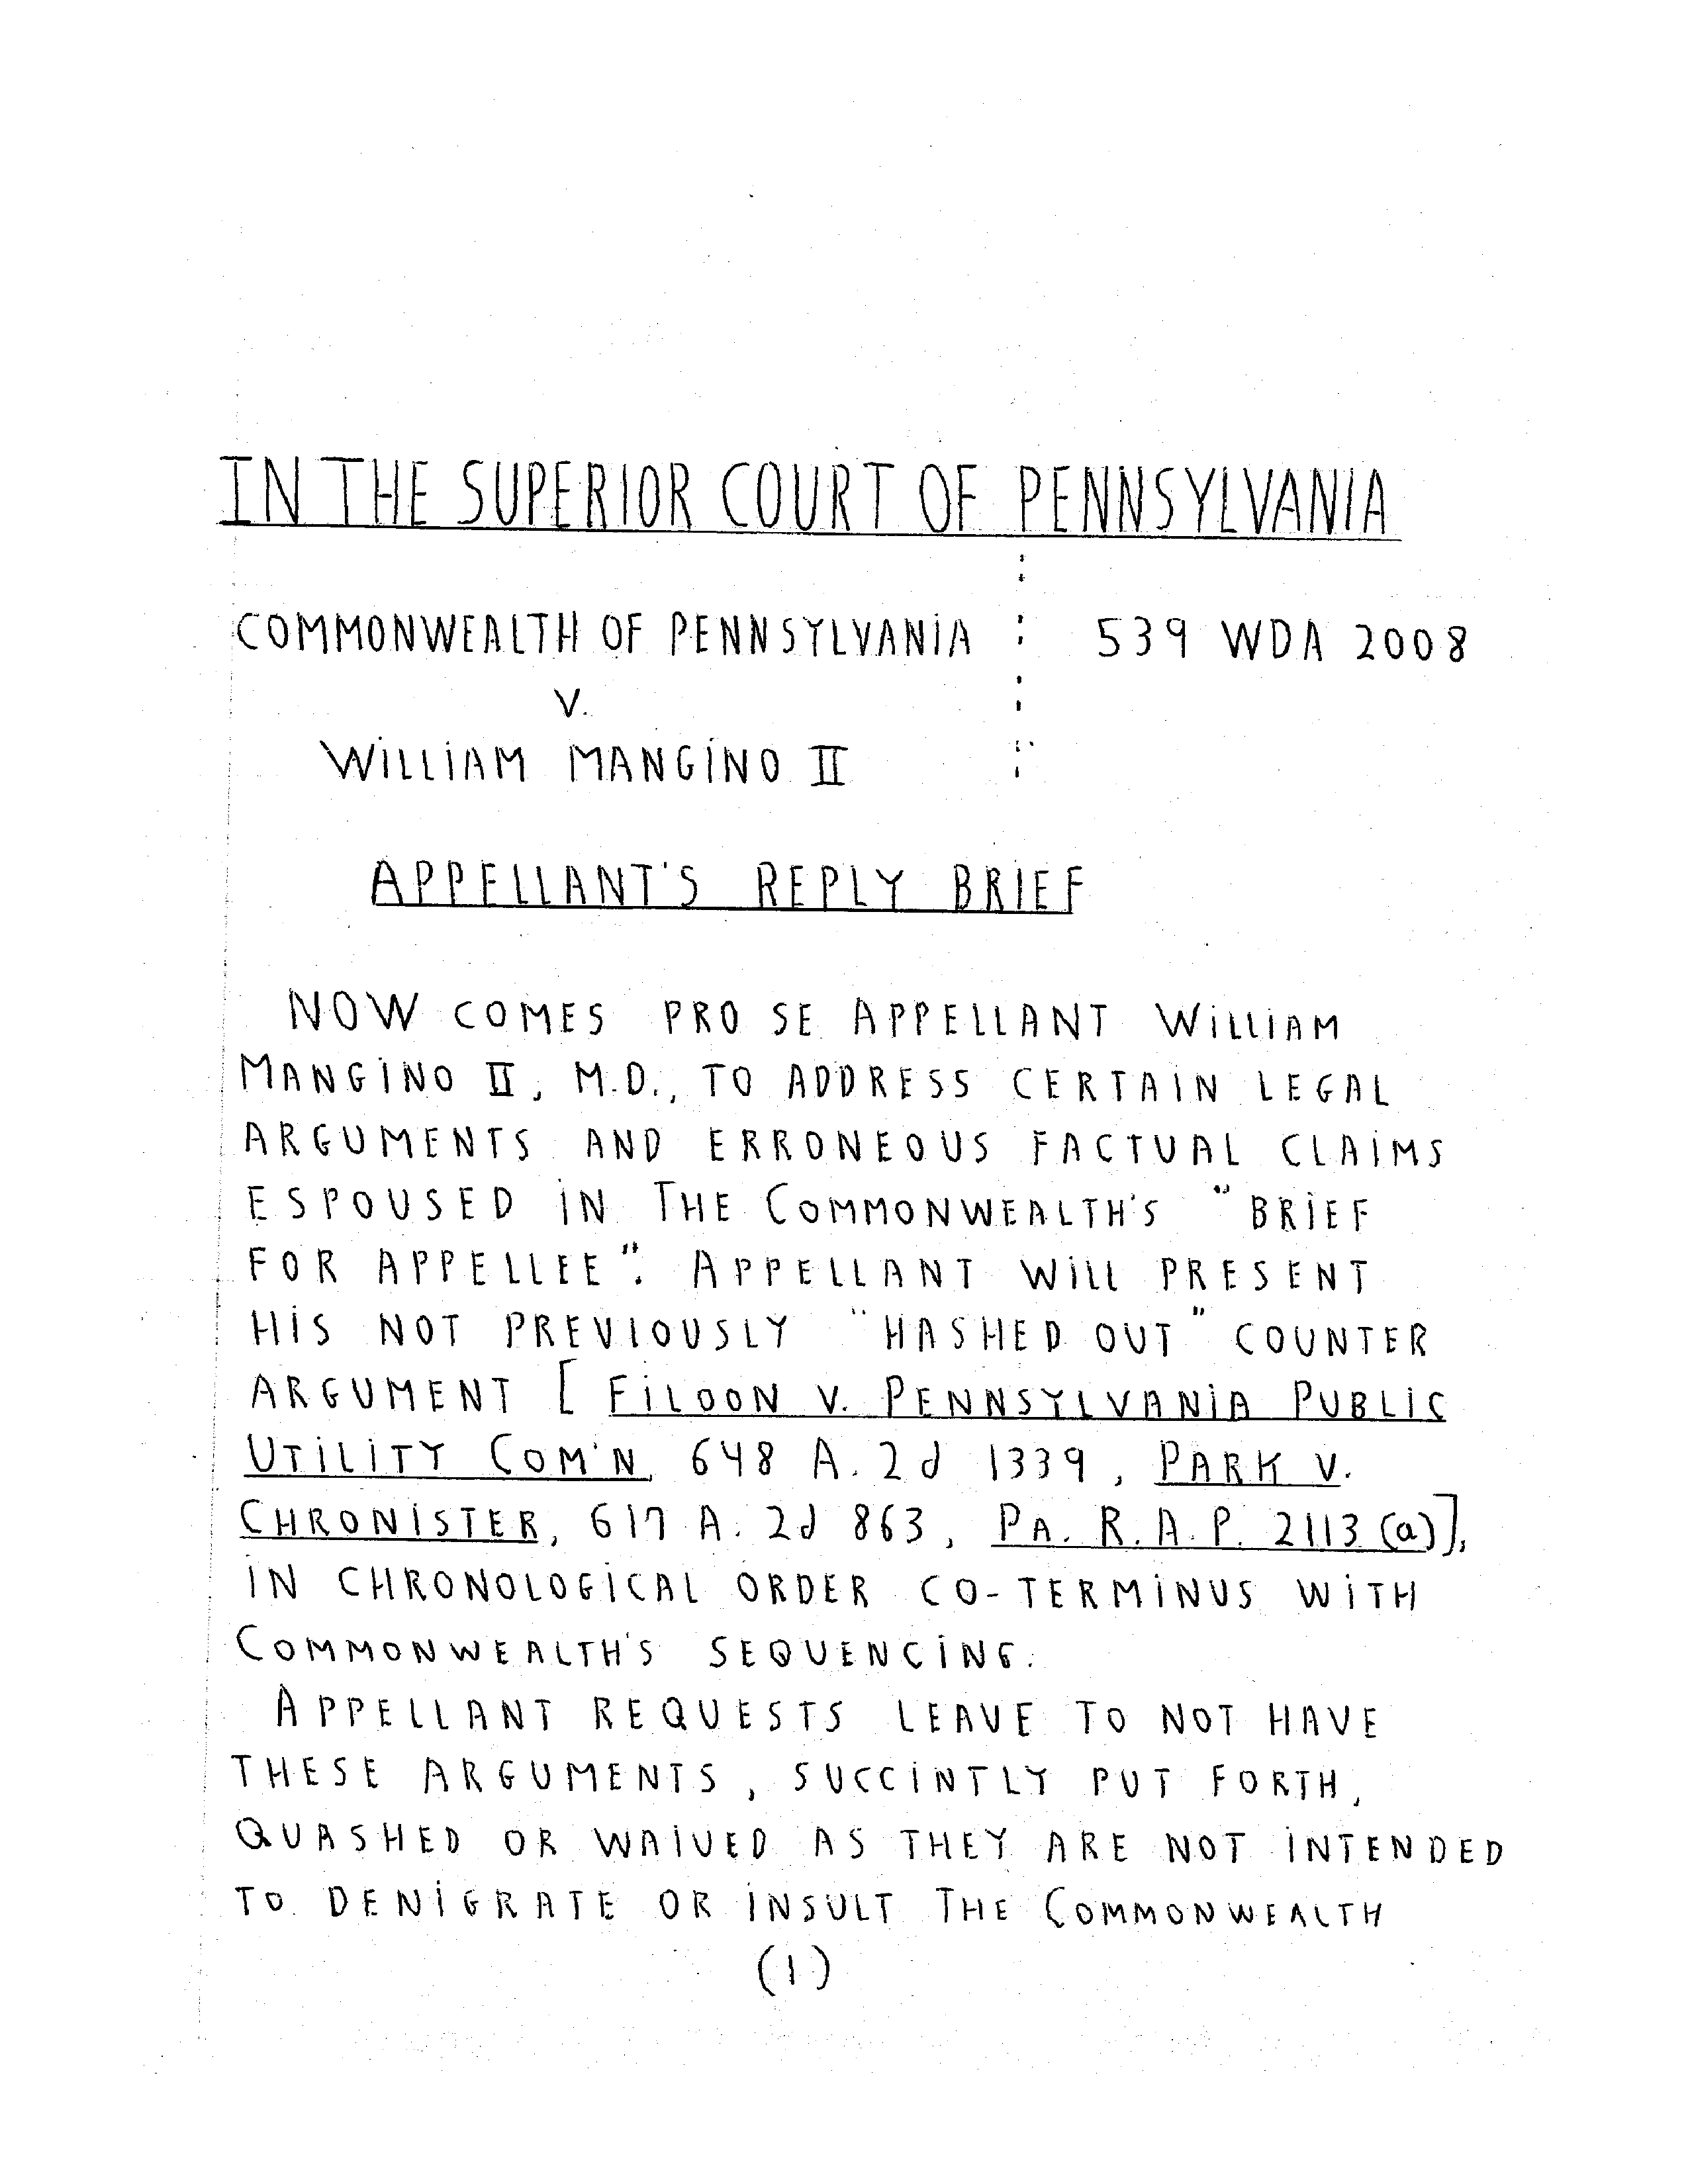 IN THE SUPERIOR COURT OF PENNSYLVANIA
COMMONWEALTH OF PENNSYLVANIA : 539 WDA 2008
V.
WILLIAM MANGINO II
APPELLANT'S REPLY BRIEF
NOW COMES PRO SE APPELLANT WILLIAM
MANGINO II, M.D., TO ADDRESS CERTAIN LEGAL
ARGUMENTS AND ERRONEOUS FACTUAL CLAIMS
ESPOUSED IN THE COMMONWEALTH'S "BRIEF
FOR APPELLEE". APPELLANT WILL PRESENT
HIS NOT PREVIOUSLY "HASHED OUT" COUNTER
ARGUMENT [FILOON V. PENNSYLVANIA PUBLIC
UTILITY COM'N, 648 A.2d 1339, PARK V.
CHRONISTER, 617 A.2d 863, PA. R.A.P. 2113(a)],
IN CHRONOLOGICAL ORDER CO-TERMINUS WITH
COMMONWEALTH'S SEQUENCING.
APPELLANT REQUESTS LEAVE TO NOT HAVE
THESE ARGUMENTS, SUCCINTLY PUT FORTH,
QUASHED OR WAIVED AS THEY ARE NOT INTENDED
TO DENIGRATE OR INSULT THE COMMONWEALTH
(1)